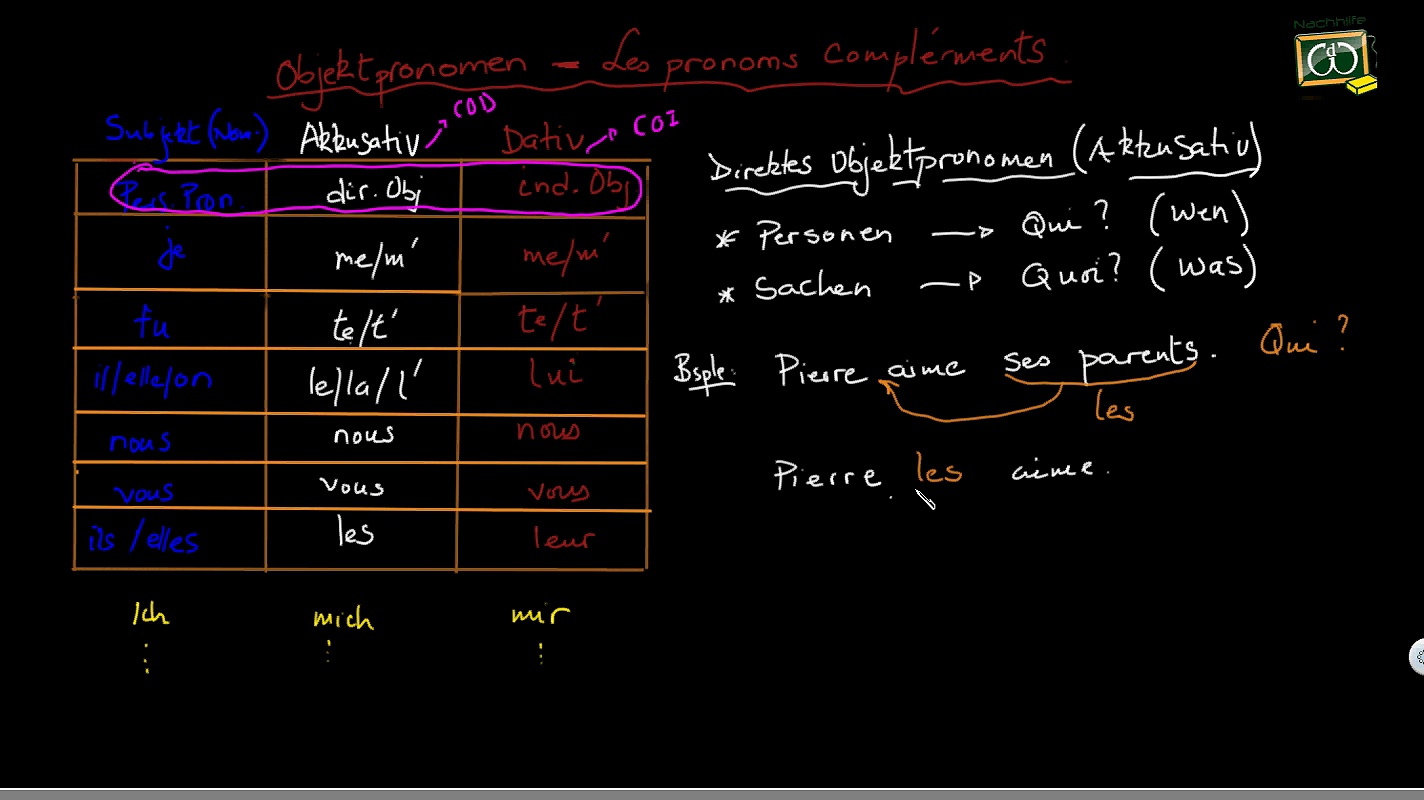 Nachhilfe
Objektpronomen = Les pronoms compléments.
Subjekt (Nom.) Akkusativ COD Dativ COI
Pers. Pron. dir. Obj ind. Obj
je me/m' me/m'
tu te/t' te/t'
il/elle/on le/la/l' lui
nous nous nous
vous vous vous
ils/elles les leur
Ich mich mir
⋮ ⋮ ⋮
Direktes Objektpronomen (Akkusativ)
* Personen → Qui? (Wen)
* Sachen → Quoi? (Was)
Bsple: Pierre aime ses parents. Qui?
les
Pierre les aime.